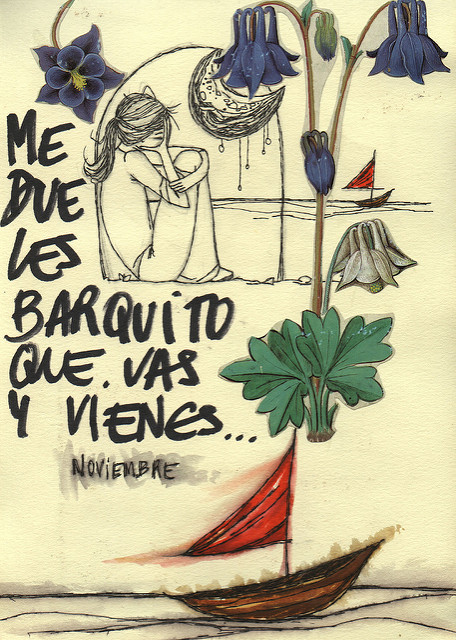 ME
DUE
LES
BARQUITO
QUE. VAS
Y VIENES...
NOVIEMBRE